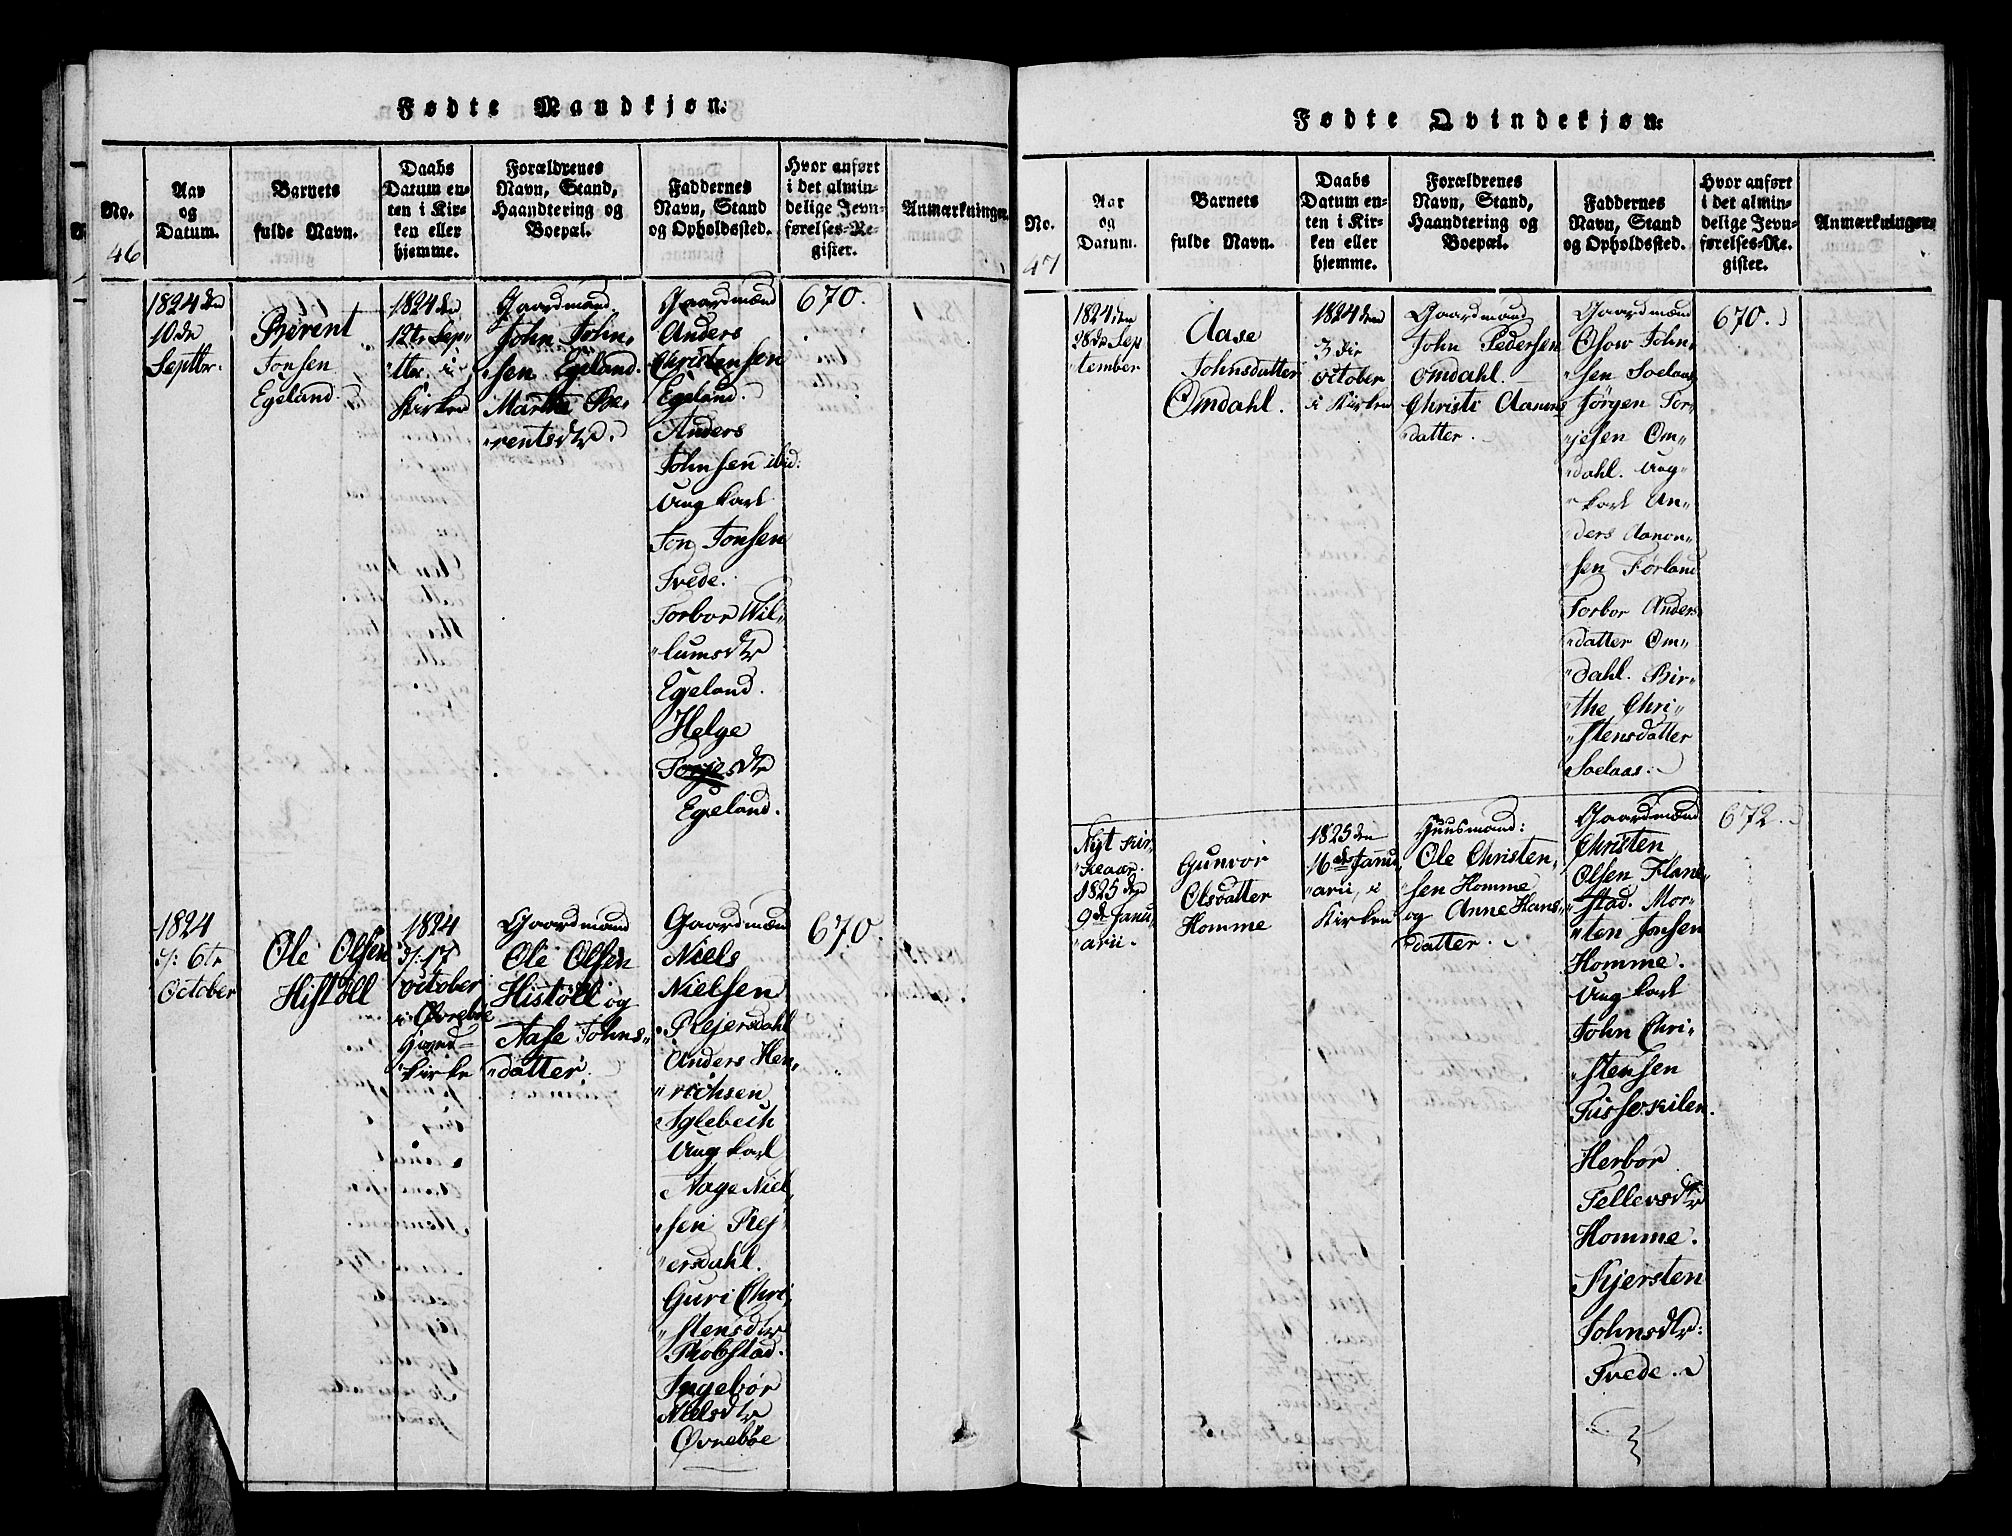 Fødte Mandkjøn:
No.
46
Aar
og
Datum.
Barnets
fulde Navn.
Daabs
Datum en-
ten i Kir-
ken eller
hjemme.
Forældrenes
Navn, Stand,
Haandtering og
Boepæl.
Faddernes
Navn, Stand
og Opholdssted.
Hvor anført
i det almin-
delige Jevn-
førelses-Re-
gister.
Anmærkninger.
1824 den
10de
Septbr.
Berent
Jonsen
Egeland.
1824 den
12te Sep„
„tbr. i
Kirken
Gaardmand
John John„
„sen Egeland.
Marthe Be„
„rentsdtr.
Gaardmænd
Anders
Christensen
Egeland.
Anders
Johnsen ibid:
Ung karl
Jon Jonsen
Tvede.
Torbor Wil„
„lumsdtr
Egeland.
Helge
Torjesdtr
Egeland.
670.
1824
d: 6te
October
Ole Olsen
Histøll
1824
d: 17
October
i Øvrebøe
Hoved-
kirke
Gaardmand
Ole Olsen
Histøll og
Aase Johns„
„datter.
Gaardmænd
Niels
Nielsen
Rejersdahl
Anders Hen„
„richsen
Ung karl
Aage Niel„
„sen Rej„
„ersdahl.
Guri Chri„
„stensdtr
Robstad.
Ingebor
Nielsdtr
Øvrebøe
670.
Fødte Qvindekjøn:
No.
47
Aar
og
Datum.
Barnets
fulde Navn.
Daabs
Datum en-
ten i Kir-
ken eller
hjemme.
Forældrenes
Navn, Stand,
Haandtering og
Boepæl.
Faddernes
Navn, Stand
og Opholdssted.
Hvor anført
i det almin-
delige Jevn-
førelses-Re-
gister.
Anmærkninger.
1824 den
28de Sep„
„tember
Aase
Johnsdatter
Omdahl.
1824 den
3die
October
i Kirken
Gaardmand
John Pedersen
Omdahl.
Christi Aanens
„datter.
Gaardmænd
Osow John„
„sen Soelaas
Jørgen Tor„
„jesen Om„
„dahl. Ung„
„karl An„
„ders Aanon„
„sen Førland
Torbor Anders
„datter Om„
„dahl. Bir„
„the Chri„
„stensdatter
Soelaas.
670.
Nyt Kir„
„keaar.
1825 den
9de Janu„
„arii.
Gunvor
Olsdatter
Homme
1825 den
16de Janu„
„arii, i
Kirken
Huusmand:
Ole Christen„
„sen Homme
og Anne Hans„
„datter.
Gaardmænd
Christen
Olsen Flane„
„stad. Mor„
„ten Jonsen
Homme.
Ung karl
John Chri„
„stensen
Fusseskilen.
Herbor
Tellevsdtr
Homme.
Kjersten
Johnsdtr:
Tvede.
672.